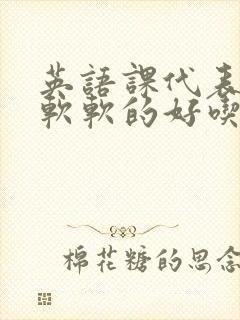 英語課代表
軟軟的好喫
棉花糖的思念